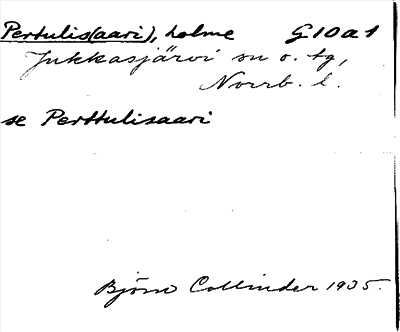 Pertulis(aari), holme G10a1
Jukkasjärvi sn o. tg,
Norrb. l.
se Perttulisaari
Björn Collinder 1935.